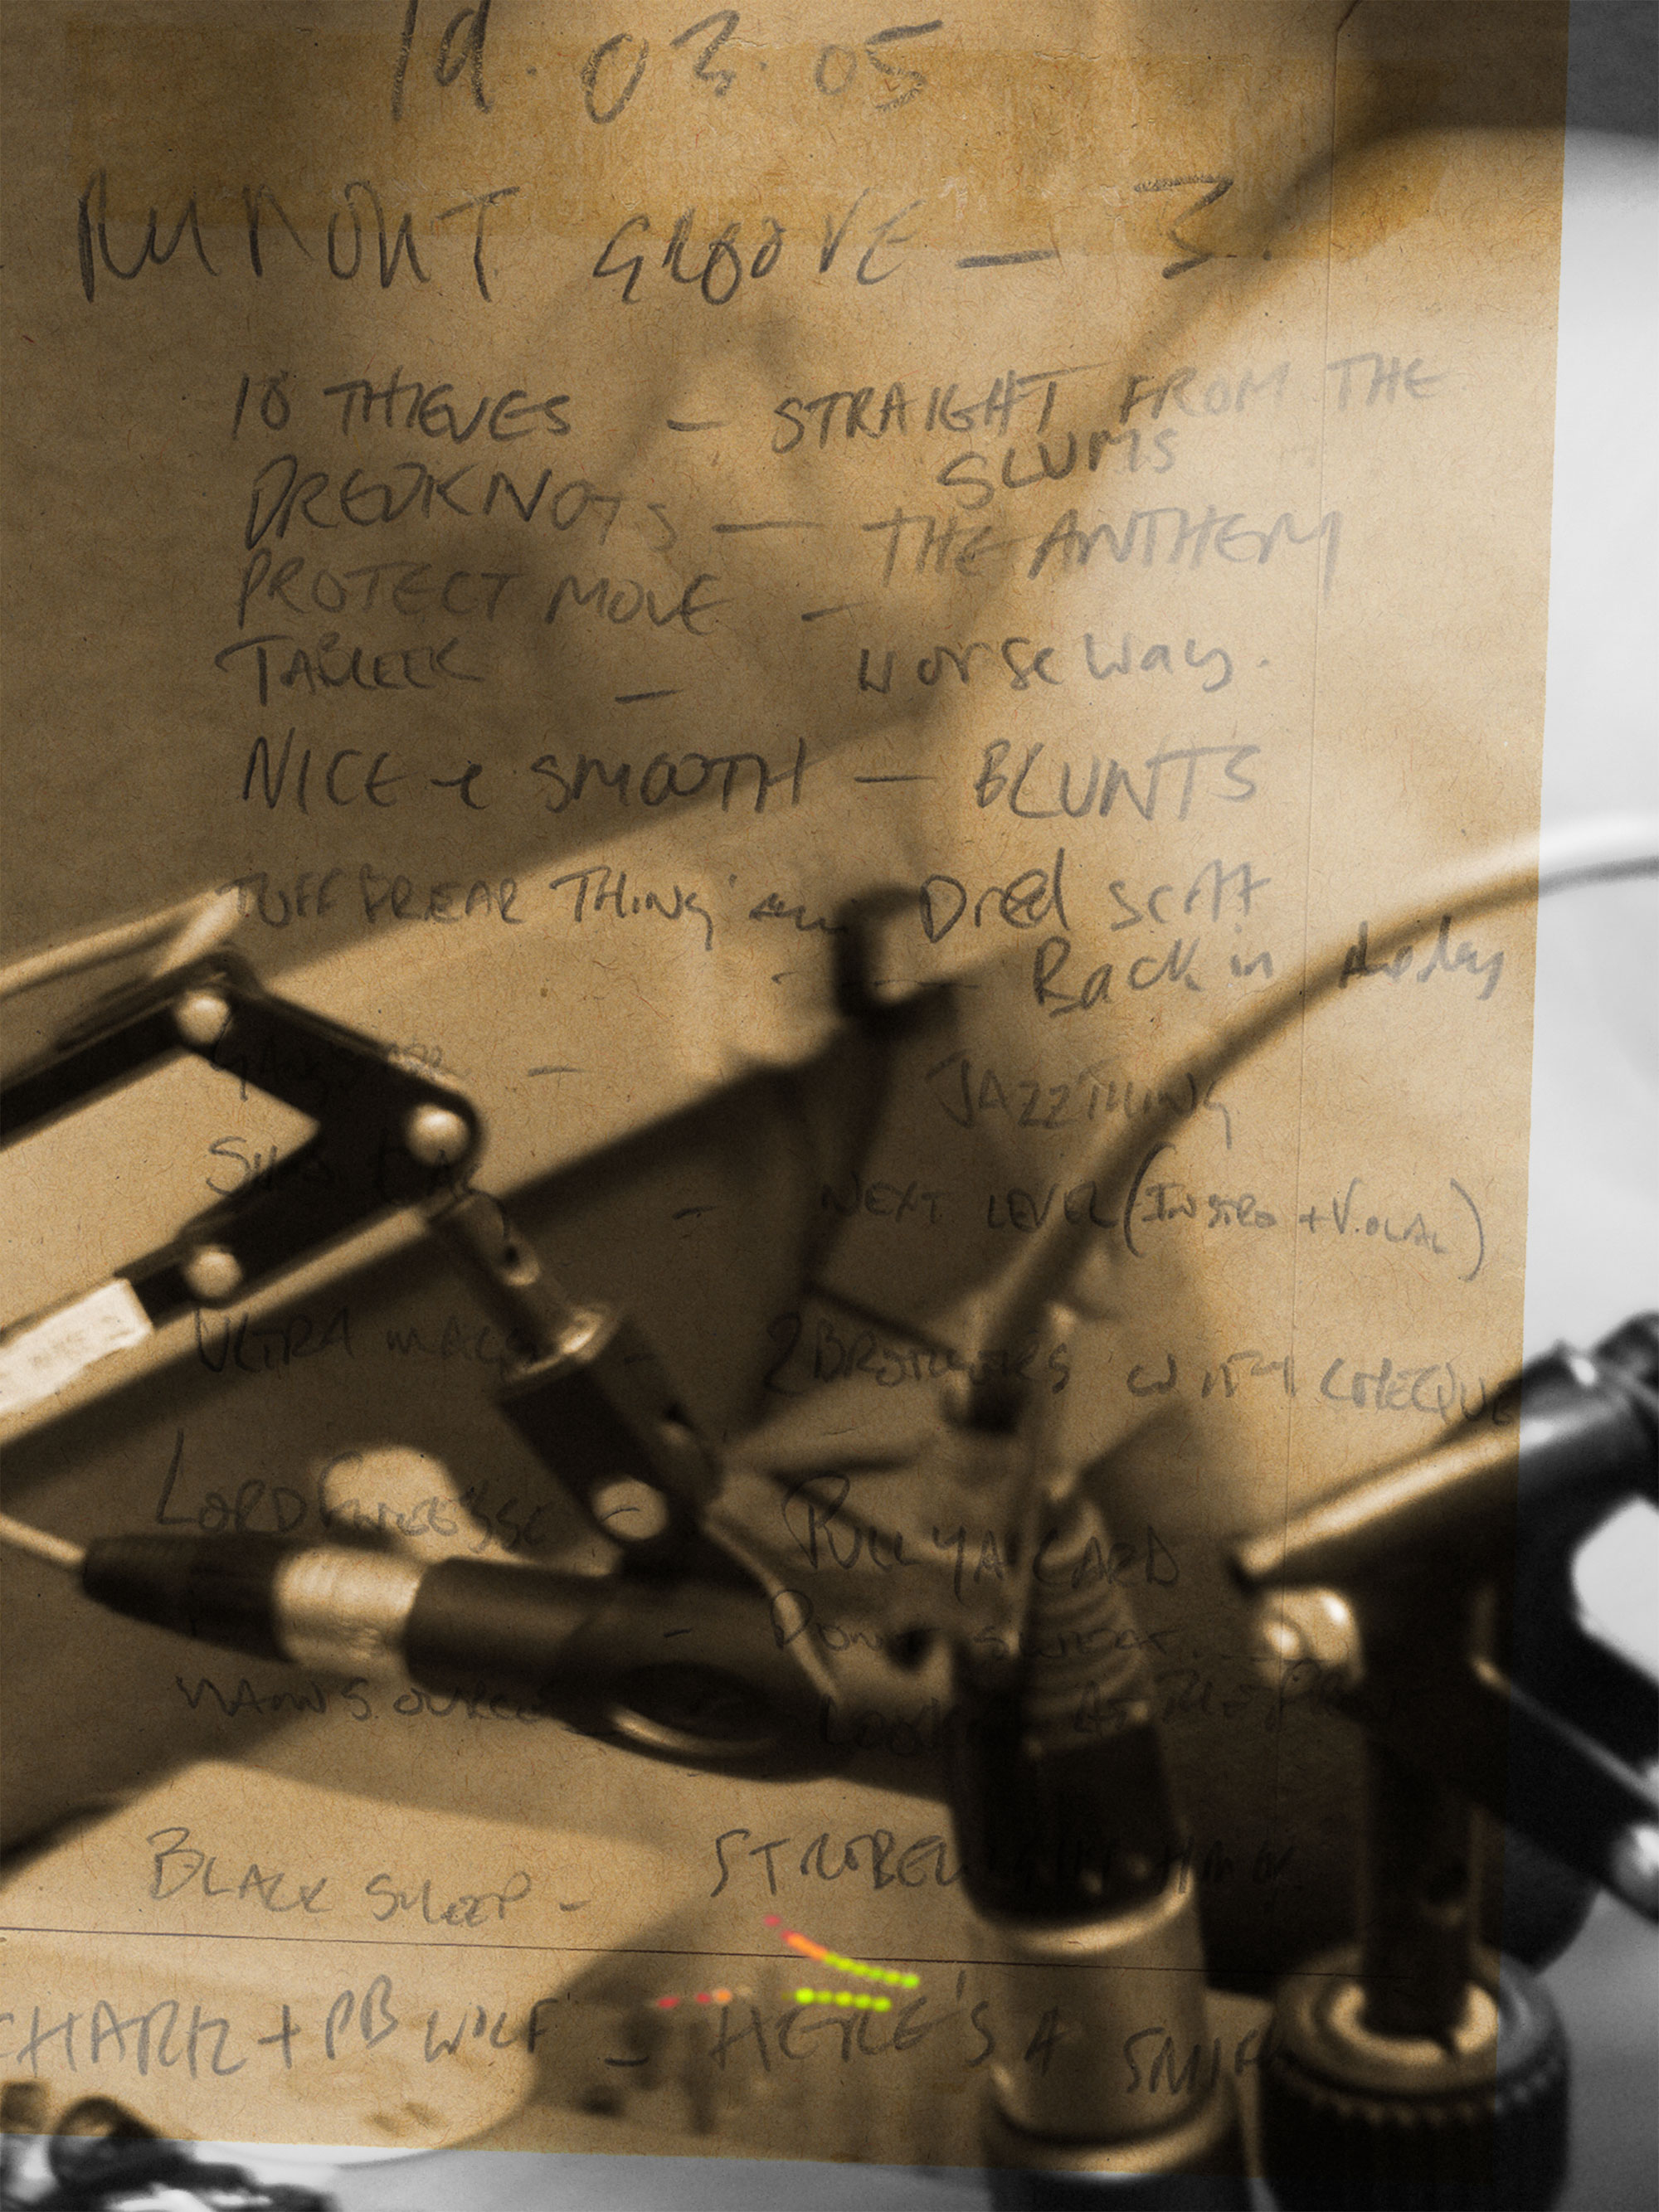 19.03.05
RUMOUR GROOVE — 3.
10 THIEVES — STRAIGHT FROM THE
SLUMS
DREDKNOTS — THE ANTHEM
PROTECT MOVE —
TABLEEK — Worse Way.
NICE & SMOOTH — BLUNTS
TUFF BREAK THING Dred Scott
— Back in the day
— JAZZ THING
— NEXT LEVEL (INSTRO + VOCAL)
ULTRA MAGS — 2 BROTHERS WITH CHEQUE
LORD FINESSE — PULL YA CARD
— DON'T SWEAT...
MAIN SOURCE LOOKIN AT THE FRONT
BLACK SHEEP —
+ PB WOLF — HERE'S A